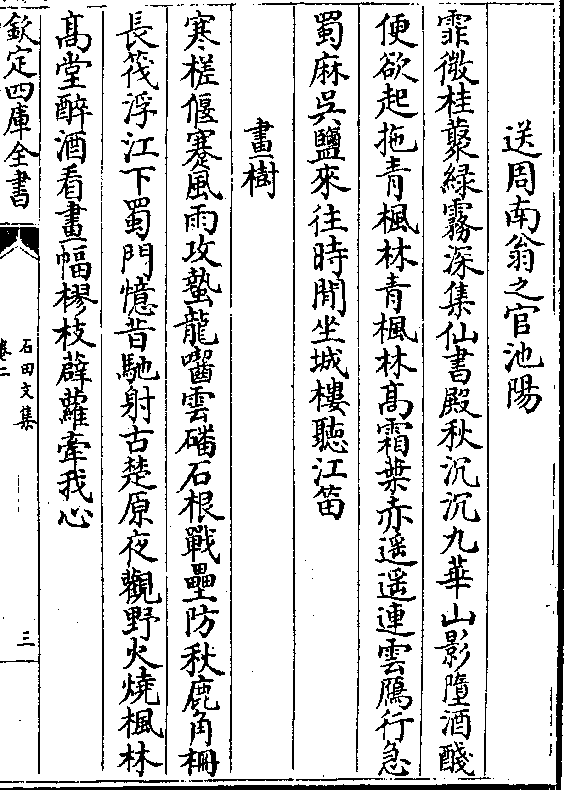 送周南翁之官池陽
霏微桂蘂綠霧深集仙書殿秋沉沉九華山影墮酒醆
便欲起拖青楓林青楓林髙霜葉赤遥遥連雲鴈行急
蜀麻吳鹽來往時閒坐城樓聽江笛
畫樹
寒槎偃蹇風雨攻蟄龍嚙雲磻石根戰壘防秋鹿角柵
長筏浮江下蜀門憶昔馳射古楚原夜觀野火燒楓林
髙堂醉酒看畫幅樛枝薜蘿牽我心
欽定四庫全書
石田文集
卷二
三